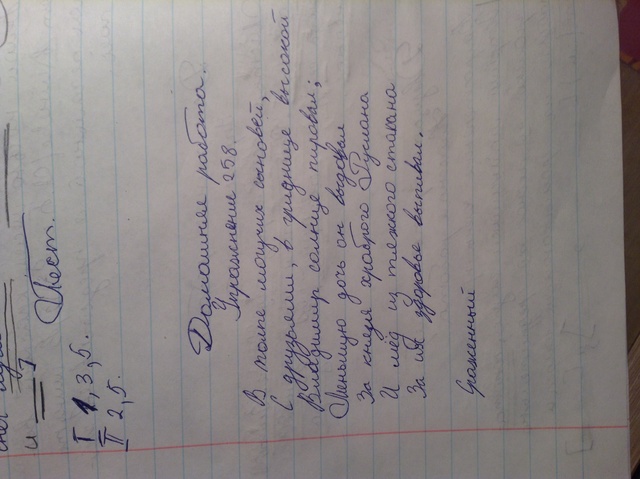 и
Тест.
I 1, 3, 5.
II 2, 5.
Домашняя работа.
Упражнение 258.
В толпе могучих сыновей,
С друзьями, в гриднице высокой
Владимир солнце пировал;
Меньшую дочь он выдавал
За князя храброго Руслана
И мёд из тяжкого стакана
За их здоровье выпивал.
Сраженный